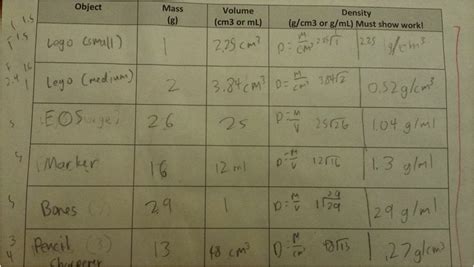 Object Mass (g) Volume (cm3 or mL) Density (g/cm3 or g/mL) Must show work!
1.5 Lego (small) 1 2.25 cm³ D=M/cm³ 2.25√1 2.25 g/cm³
2.4 Lego (medium) 2 3.84 cm³ D=M/cm³ 3.84√2 0.52 g/cm³
5 EOS 26 25 D=M/V 25√26 1.04 g/ml
5 Marker 16 12 ml D=M/V 12√16 1.3 g/ml
5 Bones (5) 29 1 D=M/V 1√29 29 g/ml
3 4 Pencil (3) Sharpener 13 48 cm³ D=M/cm³ 48√13 .27 g/cm³